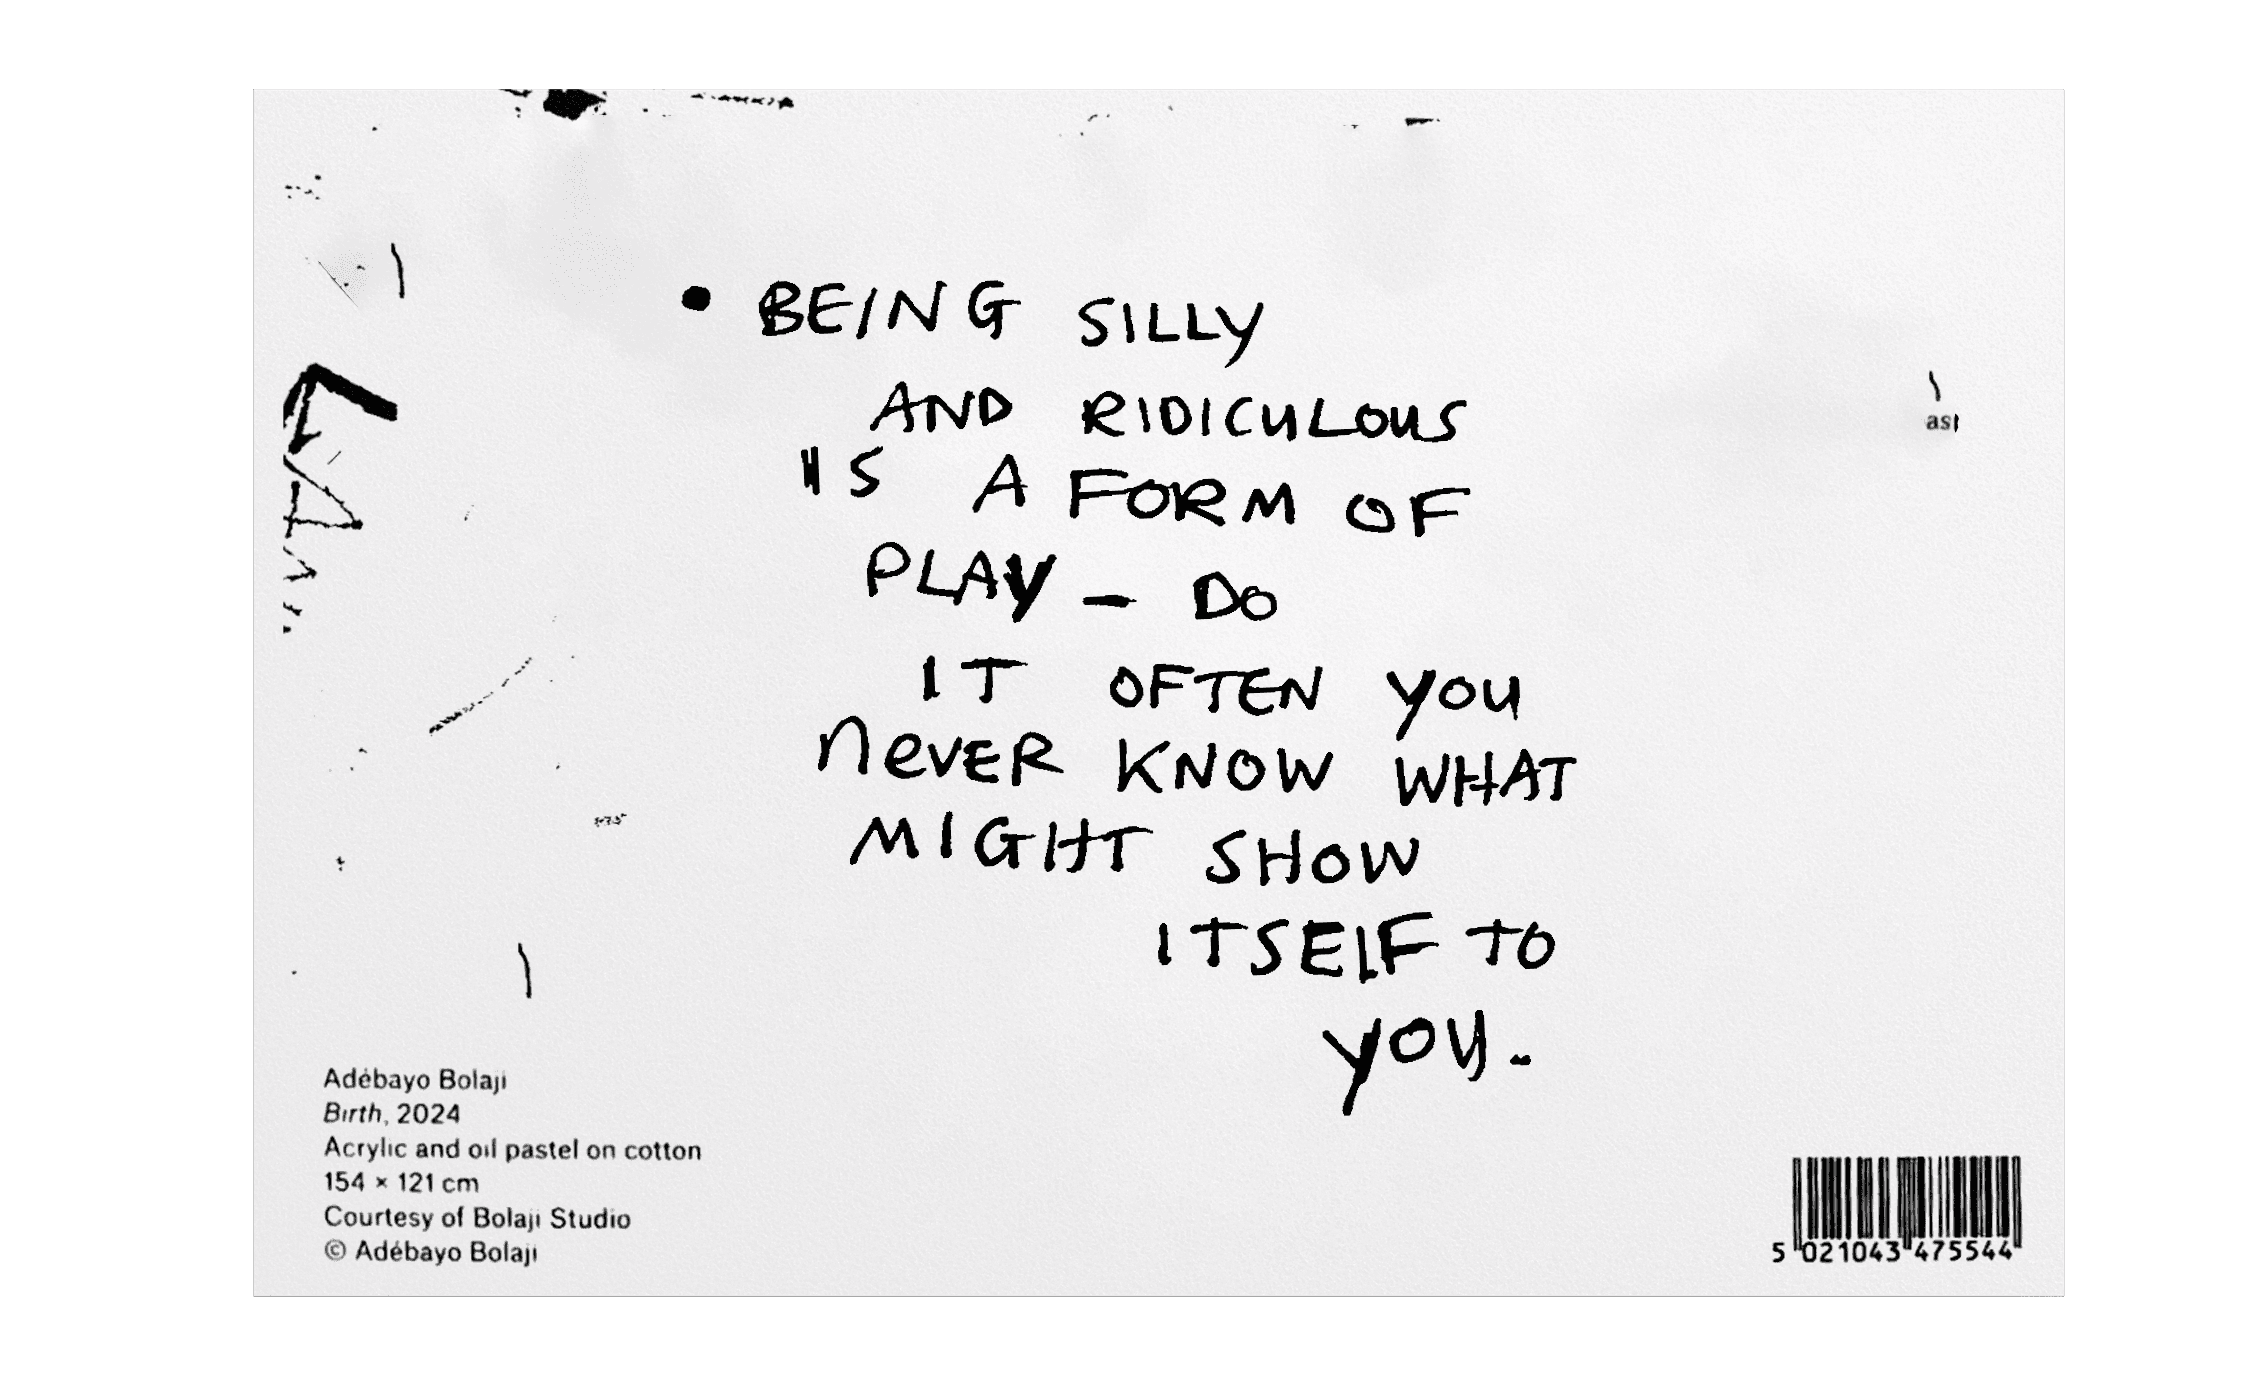 • BEING SILLY
AND RIDICULOUS
IS A FORM OF
PLAY – DO
IT OFTEN YOU
NEVER KNOW WHAT
MIGHT SHOW
ITSELF TO
YOU.
Adébayo Bolaji
Birth, 2024
Acrylic and oil pastel on cotton
154 × 121 cm
Courtesy of Bolaji Studio
© Adébayo Bolaji
5 021043 475544